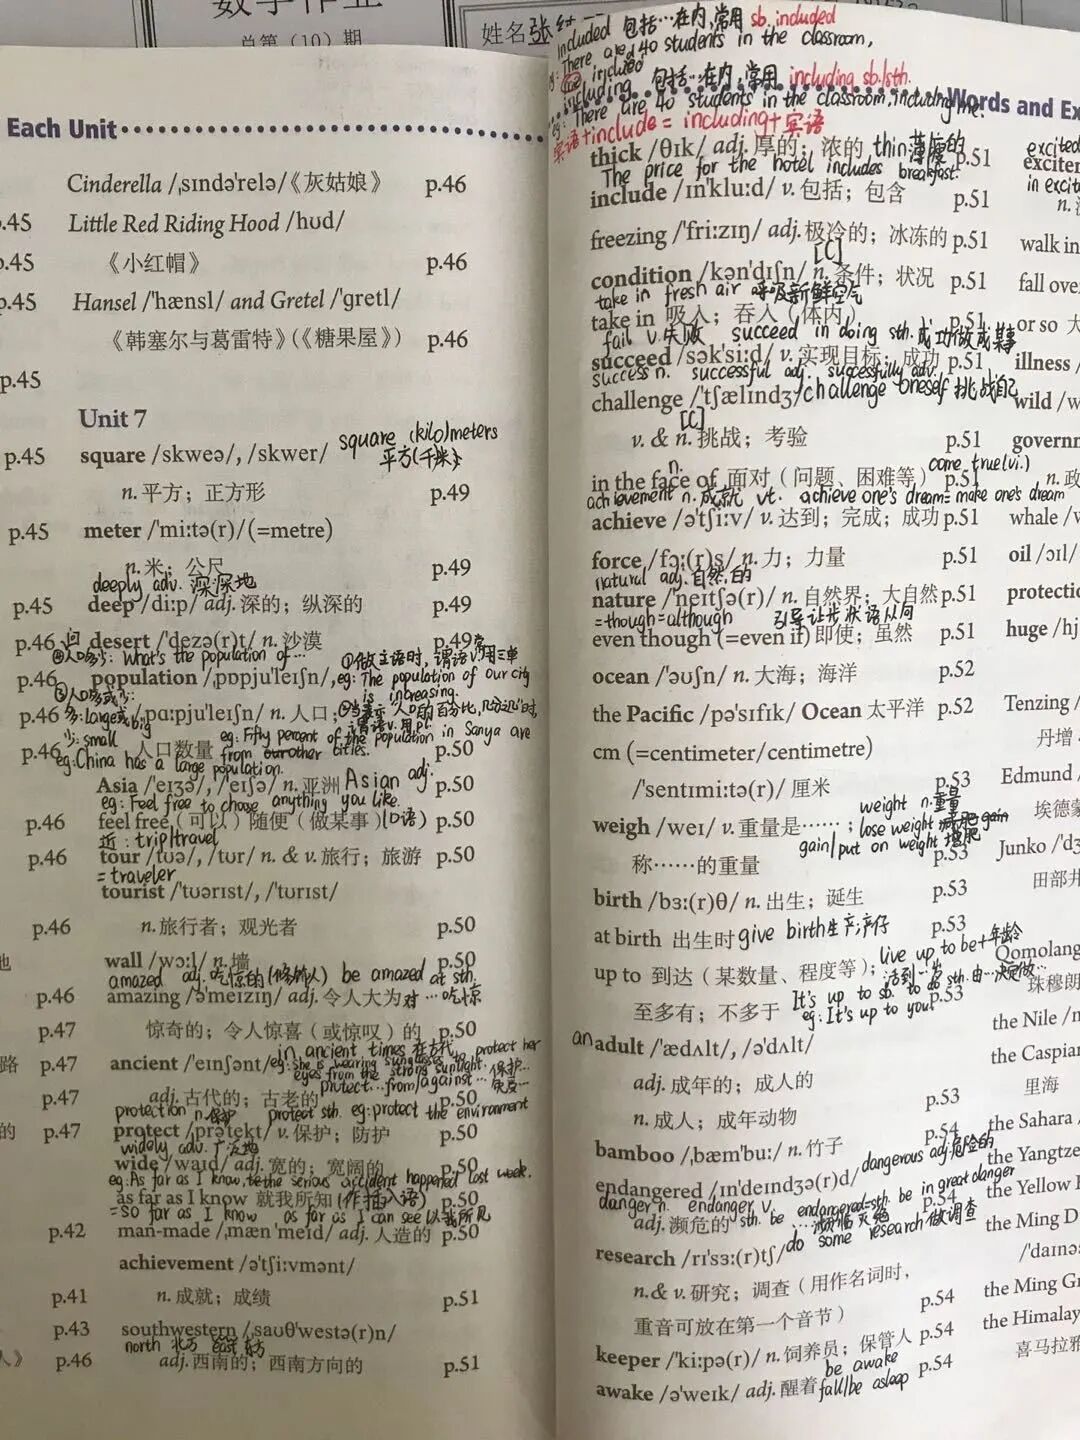 数学作业
总第（10）期
姓名张
Each Unit
Cinderella /ˌsɪndəˈrelə/《灰姑娘》 p.46
p.45 Little Red Riding Hood /hʊd/
p.45 《小红帽》 p.46
p.45 Hansel /ˈhænsl/ and Gretel /ˈɡretl/
《韩塞尔与葛雷特》（《糖果屋》） p.46
p.45
Unit 7
square (kilo)meters
p.45 square /skweə/, /skwer/
平方(千米)
n. 平方；正方形 p.49
p.45 meter /ˈmiːtə(r)/ (=metre)
n. 米；公尺 p.49
deeply adv. 深深地
p.45 deep /diːp/ adj. 深的；纵深的 p.49
p.46 desert /ˈdezə(r)t/ n. 沙漠 p.49
问人口多少: What's the population of…
①做主语时,谓语v.常用三单
p.46 population /ˌpɒpjuˈleɪʃn/,
eg: The population of our city
is increasing.
③人口多或少:
p.46 /ˌpɑːpjuˈleɪʃn/ n. 人口；
多: large或big
②当表示人口的百分比,几分之几时,
谓语v.用pl.
少: small
eg: Fifty percent of the population in Sanya are
p.46 人口数量 p.50
from other cities.
eg: China has a large population.
Asia /ˈeɪʒə/, /ˈeɪʃə/ n. 亚洲 Asian adj. p.50
eg: Feel free to choose anything you like.
p.46 feel free（可以）随便（做某事）(口语) p.50
近: trip/travel
p.46 tour /tʊə/, /tʊr/ n. & v. 旅行；旅游 p.50
= traveler
tourist /ˈtʊərɪst/, /ˈtʊrɪst/
p.46 n. 旅行者；观光者 p.50
wall /wɔːl/ n. 墙 p.50
amazed adj. 吃惊的(修饰人) be amazed at sth.
p.46 amazing /əˈmeɪzɪŋ/ adj. 令人大为
对…吃惊
p.47 惊奇的；令人惊喜（或惊叹）的 p.50
in ancient times 在古代
p.47 ancient /ˈeɪnʃənt/
eg: She is wearing sunglasses to protect her
eyes from the strong sunlight.
protect…from/against… 保护…
p.47 adj. 古代的；古老的 p.50
protection n. 保护 protect sth. eg: protect the environment
p.47 protect /prəˈtekt/ v. 保护；防护 p.50
widely adv. 广泛地
wide /waɪd/ adj. 宽的；宽阔的 p.50
eg: As far as I know, the serious accident happened last week.
as far as I know 就我所知 (作插入语) p.50
= so far as I know as far as I can see 以我所见
p.42 man-made /ˌmæn ˈmeɪd/ adj. 人造的 p.50
achievement /əˈtʃiːvmənt/
p.41 n. 成就；成绩 p.51
p.43 southwestern /ˌsaʊθˈwestə(r)n/
north 北方 east 东方
p.46 adj. 西南的；西南方向的 p.51
included 包括…在内,常用 sb. included
eg: There are 40 students in the classroom,
me included
including 包括…在内,常用 including sb./sth.
eg: There are 40 students in the classroom, including me.
Words and Ex
宾语+include = including+宾语
thick /θɪk/ adj. 厚的；浓的 thin 薄的 p.51
The price for the hotel includes breakfast.
include /ɪnˈkluːd/ v. 包括；包含 p.51
freezing /ˈfriːzɪŋ/ adj. 极冷的；冰冻的 p.51
[C]
condition /kənˈdɪʃn/ n. 条件；状况 p.51
take in fresh air 呼吸新鲜空气
take in 吸入；吞入（体内） p.51
fail v. 失败 succeed in doing sth. 成功做成某事
succeed /səkˈsiːd/ v. 实现目标；成功 p.51
success n. successful adj. successfully adv.
challenge /ˈtʃælɪndʒ/ challenge oneself 挑战自己
[C]
v. & n. 挑战；考验 p.51
n.
in the face of 面对（问题、困难等） p.51
come true (vi.)
achievement n. 成就 vt. achieve one's dream = make one's dream
achieve /əˈtʃiːv/ v. 达到；完成；成功 p.51
force /fɔː(r)s/ n. 力；力量 p.51
natural adj. 自然的
nature /ˈneɪtʃə(r)/ n. 自然界；大自然 p.51
=though=although 引导让步状语从句
even though (=even if) 即使；虽然 p.51
ocean /ˈəʊʃn/ n. 大海；海洋 p.52
the Pacific /pəˈsɪfɪk/ Ocean 太平洋 p.52
cm (=centimeter/centimetre)
/ˈsentɪmiːtə(r)/ 厘米 p.53
weight n. 重量
weigh /weɪ/ v. 重量是……； lose weight 减肥
gain/put on weight 增肥
称……的重量 p.53
birth /bɜː(r)θ/ n. 出生；诞生 p.53
at birth 出生时 give birth 生产;产仔 p.53
live up to be+年龄
up to 到达（某数量、程度等）；
活到…岁
It's up to sb. to do sth. 由…决定做…
至多有；不多于 p.53
eg: It's up to you!
an adult /ˈædʌlt/, /əˈdʌlt/
adj. 成年的；成人的
n. 成人；成年动物 p.53
bamboo /ˌbæmˈbuː/ n. 竹子 p.54
dangerous adj. 危险的
endangered /ɪnˈdeɪndʒə(r)d/
danger n. endanger v. be in great danger
adj. 濒危的 p.54
do some research 做调查
research /rɪˈsɜː(r)tʃ/
n.& v. 研究；调查（用作名词时，
重音可放在第一个音节） p.54
keeper /ˈkiːpə(r)/ n. 饲养员；保管人 p.54
be awake
awake /əˈweɪk/ adj. 醒着 p.54
fall/be asleep
excited
exciter
in excit
walk in
fall ove
or so 大
illness /
wild /w
governm
n. 政
whale /w
oil /ɔɪl/
protectio
huge /hj
Tenzing /
丹增
Edmund /
埃德蒙
Junko /ˈdʒ
田部井
Qomolang
珠穆朗
the Nile /n
the Caspian
里海
the Sahara /
the Yangtze
the Yellow R
the Ming D
/ˈdaɪnəs
the Ming Gr
the Himalay
喜马拉雅